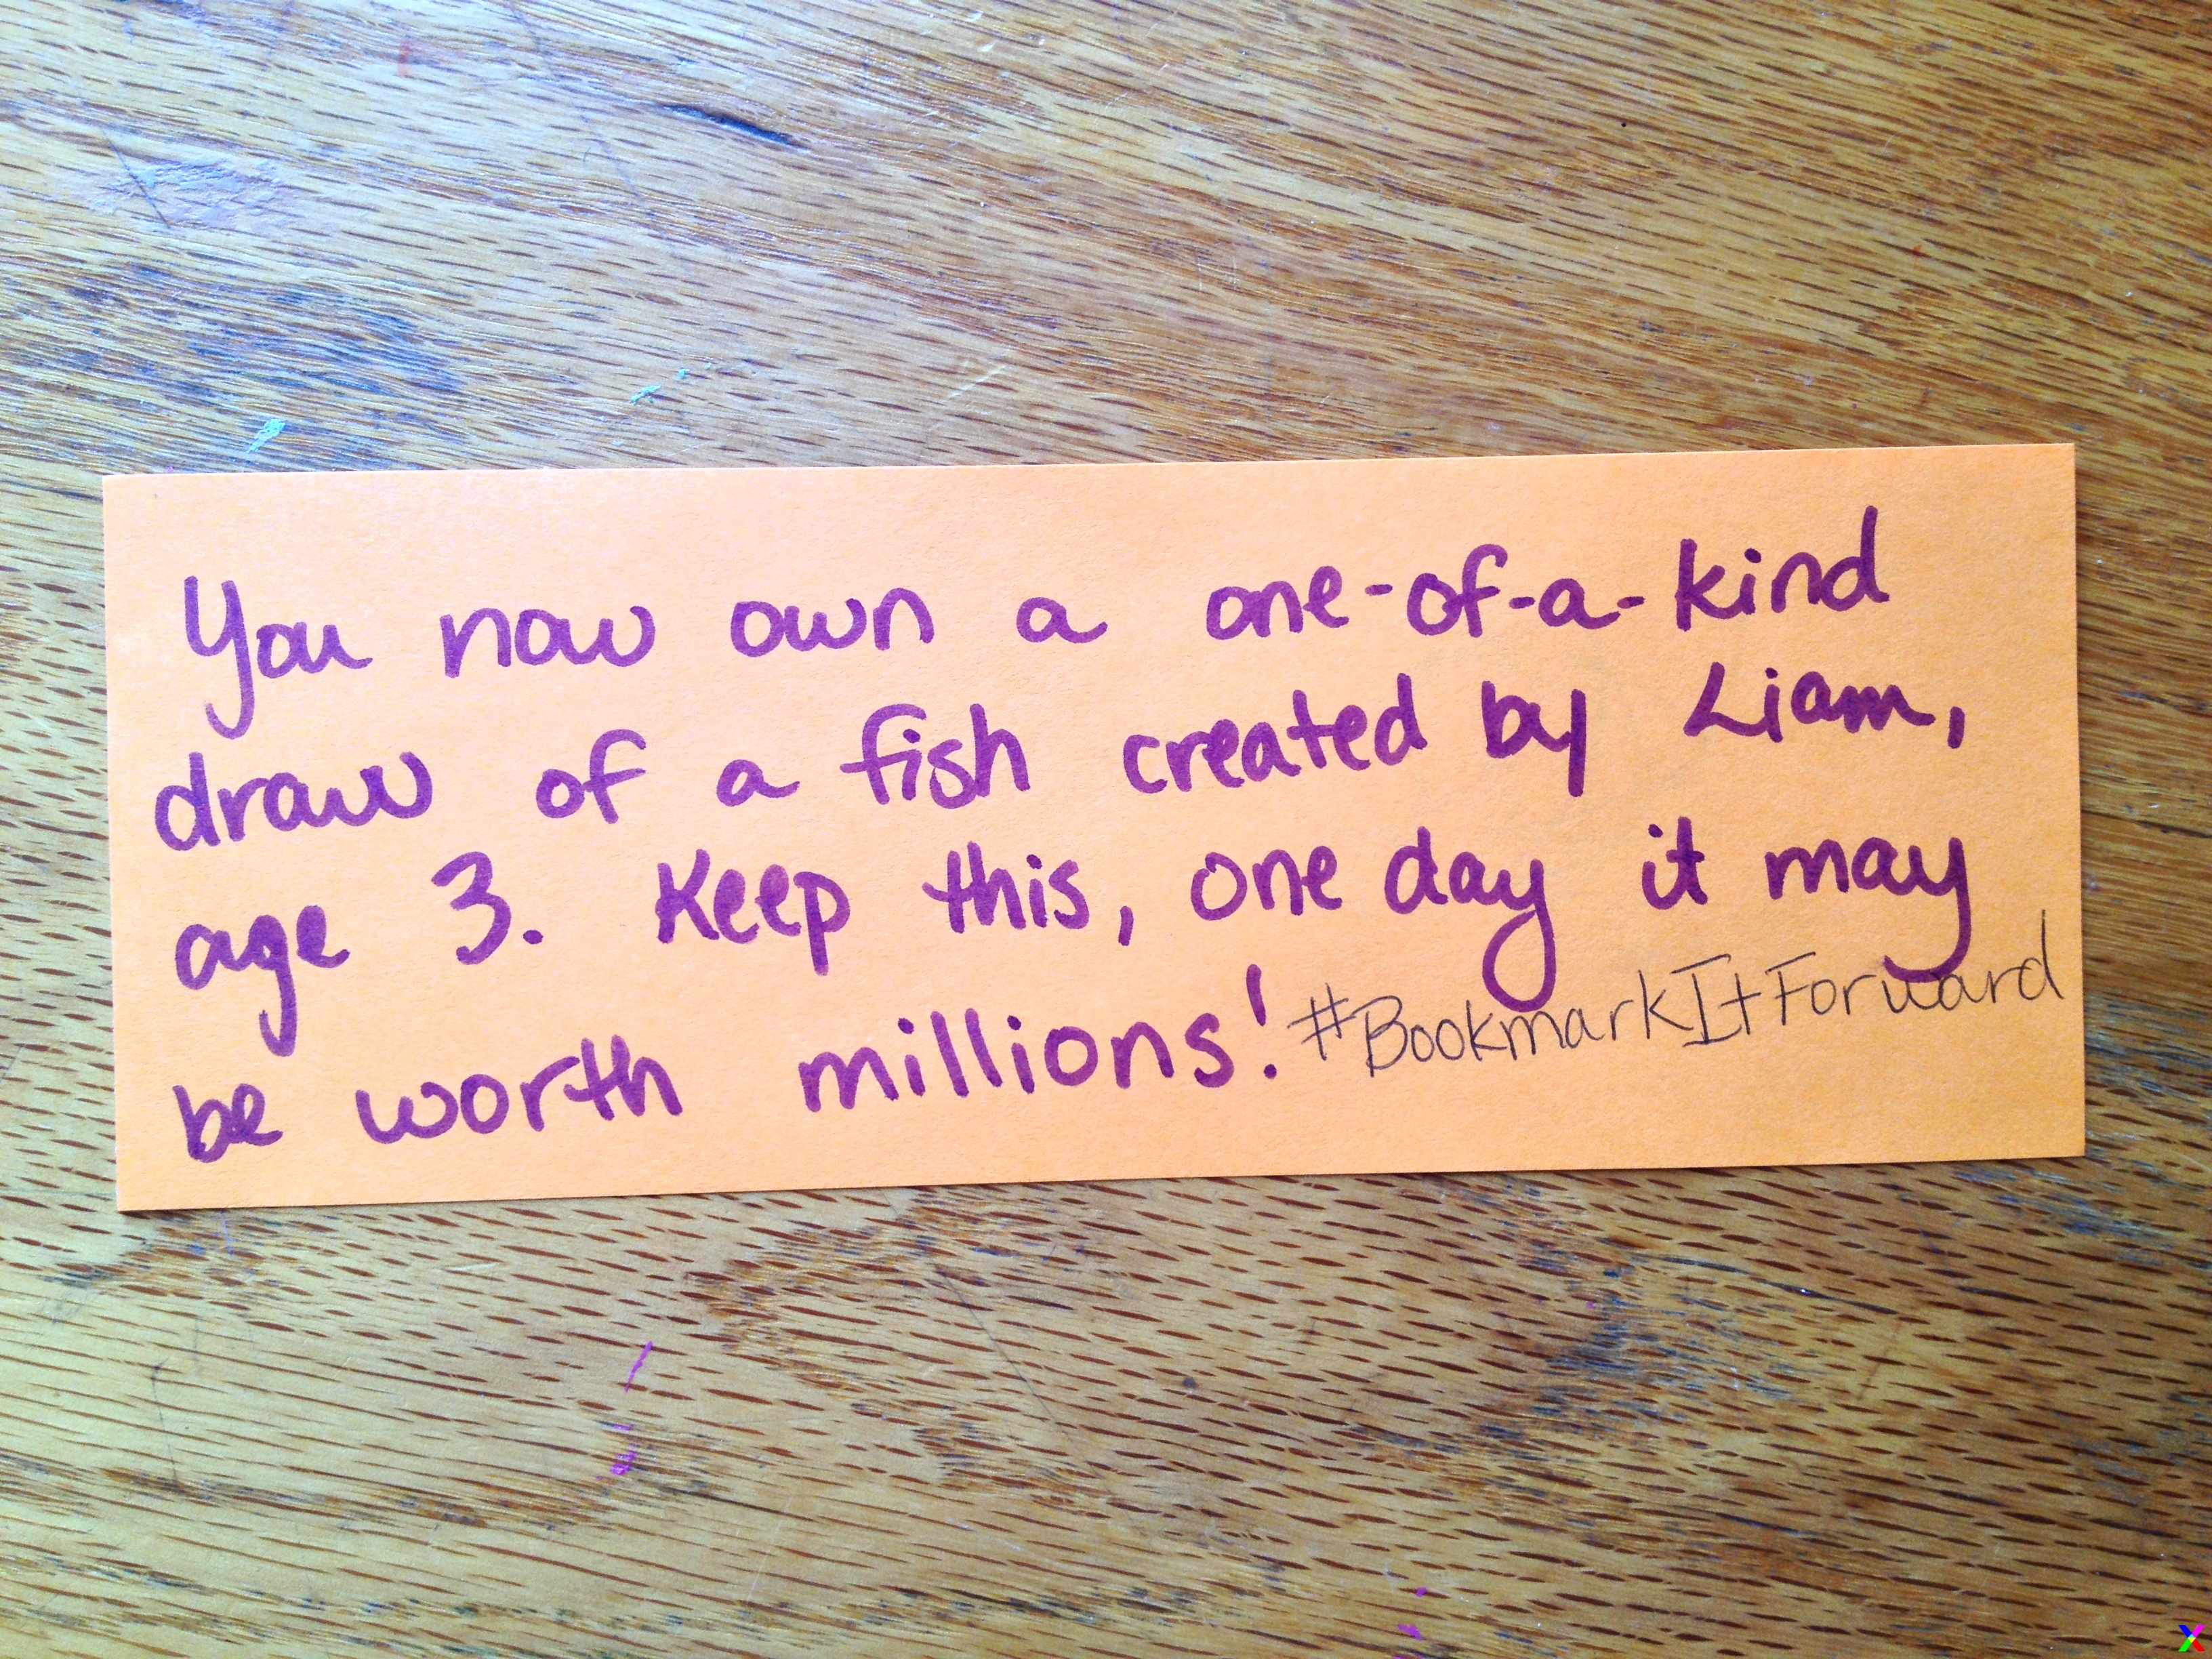 You now own a one-of-a-kind
draw of a fish created by Liam,
age 3. Keep this, one day it may
be worth millions! #BookmarkItForward